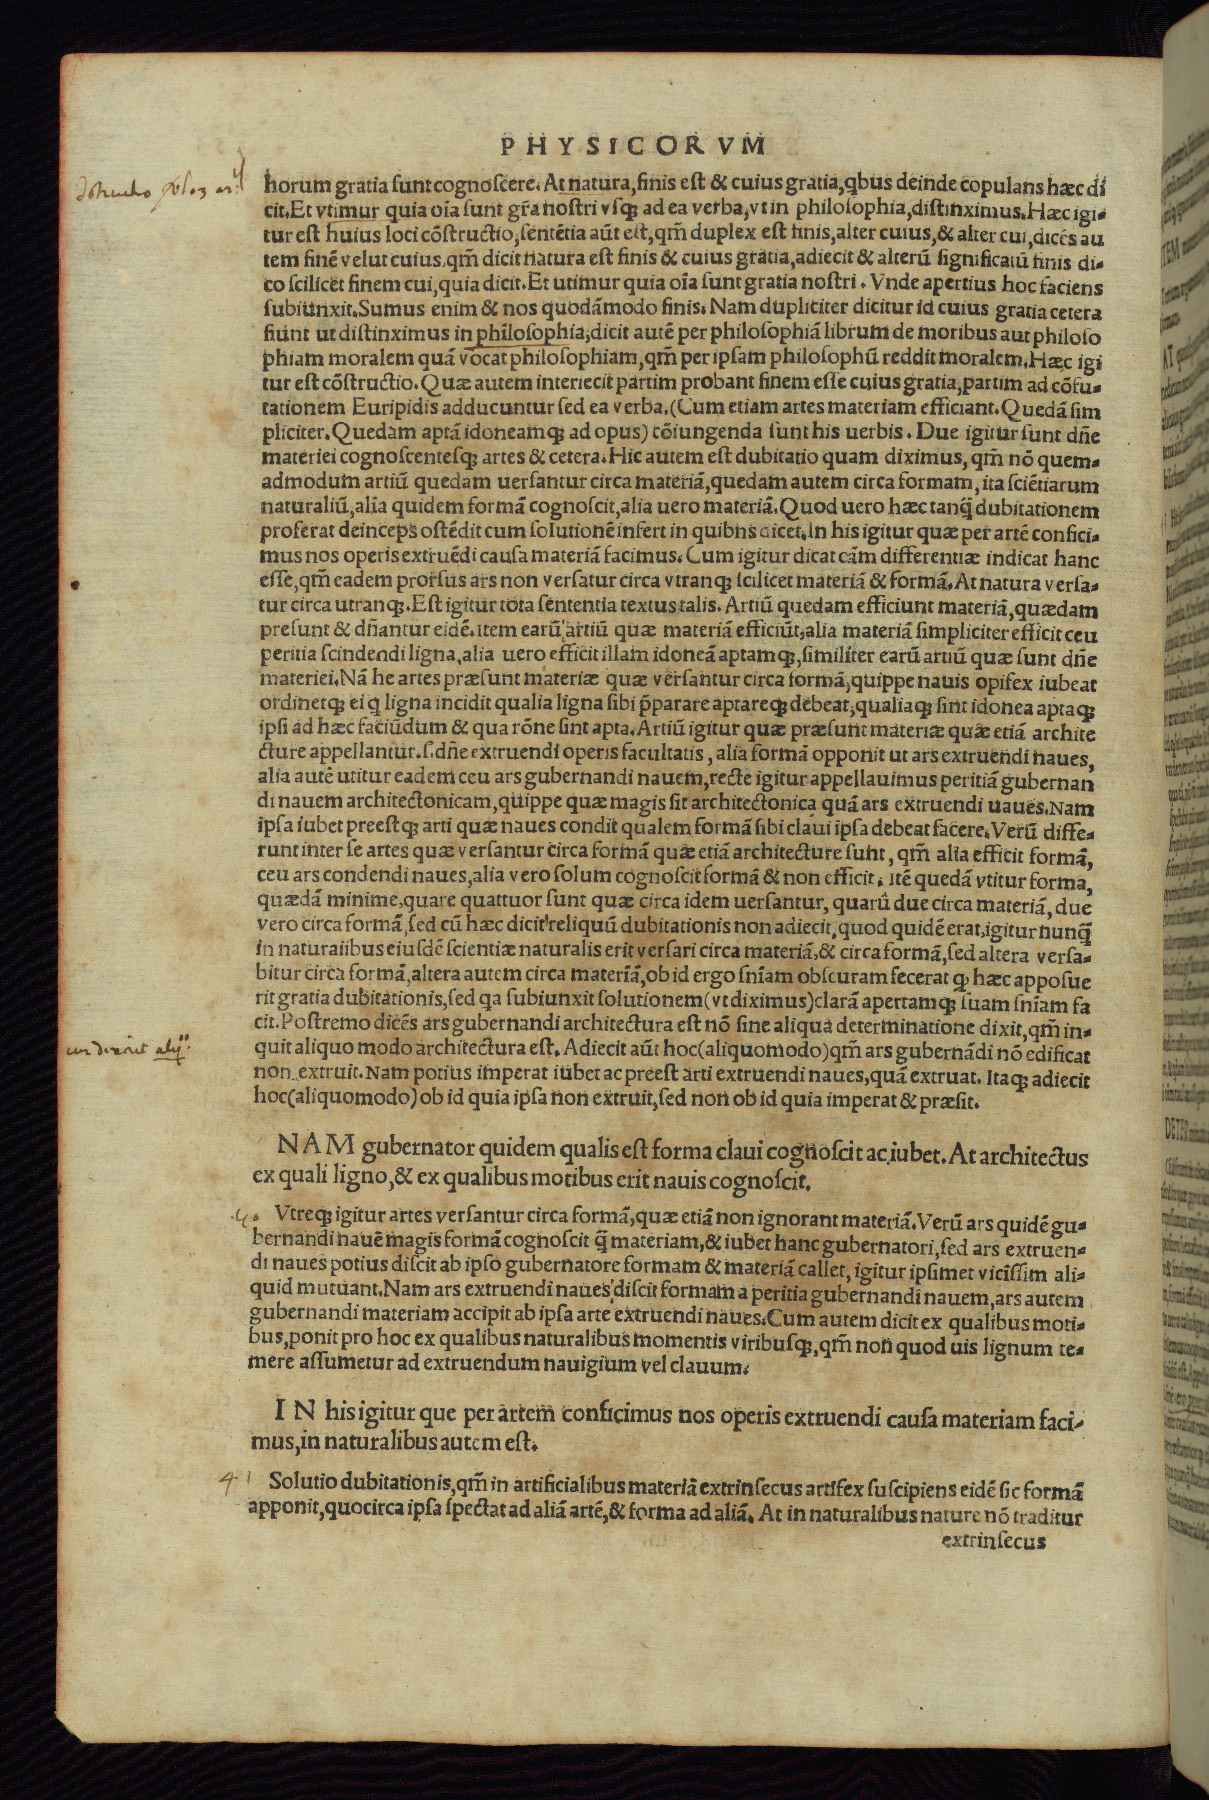 PHYSICORVM
horum gratia sunt cognoscere. At natura, finis est & cuius gratia, qbus deinde copulans hæc di
cit. Et vtimur quia oĩa sunt gr̃a nostri vsq; ad ea verba, vt in philosophia, distinximus. Hæc igi-
tur est huius loci cõstructio, sentẽtia aũt est, qm̃ duplex est finis, alter cuius, & alter cui, dicẽs au
tem finẽ velut cuius, qm̃ dicit natura est finis & cuius gratia, adiecit & alterũ significatũ finis di-
co scilicet finem cui, quia dicit. Et utimur quia oĩa sunt gratia nostri. Vnde apertius hoc faciens
subiunxit. Sumus enim & nos quodãmodo finis. Nam dupliciter dicitur id cuius gratia cetera
fiunt ut distinximus in philosophia, dicit autẽ per philosophiã librum de moribus aut philoso
phiam moralem quã vocat philosophiam, qm̃ per ipsam philosophũ reddit moralem. Hæc igi
tur est cõstructio. Quæ autem interiecit partim probant finem esse cuius gratia, partim ad cõfu-
tationem Euripidis adducuntur sed ea verba. (Cum etiam artes materiam efficiant. Quedã sim
pliciter. Quedam aptã idoneamq; ad opus) cõiungenda sunt his uerbis. Due igitur sunt dñe
materiei cognoscentesq; artes & cetera. Hic autem est dubitatio quam diximus, qm̃ nõ quem-
admodum artiũ quedam uersantur circa materiã, quedam autem circa formam, ita sciẽtiarum
naturaliũ, alia quidem formã cognoscit, alia uero materiã. Quod uero hæc tanq̃ dubitationem
proferat deinceps ostẽdit cum solutionẽ infert in quibns dicet. In his igitur quæ per artẽ confici-
mus nos operis extruẽdi causa materiã facimus. Cum igitur dicat cãm differentiæ indicat hanc
esse, qm̃ eadem prorsus ars non versatur circa vtranq; scilicet materiã & formã. At natura versa-
tur circa utranq;. Est igitur tota sententia textus talis. Artiũ quedam efficiunt materiã, quædam
presunt & dñantur eidẽ. item earũ artiũ quæ materiã efficiũt, alia materiã simpliciter efficit ceu
peritia scindendi ligna, alia uero efficit illam idoneã aptamq;, similiter earũ artiũ quæ sunt dñe
materiei. Nã he artes præsunt materiæ quæ versantur circa formã, quippe nauis opifex iubeat
ordinetq; ei q ligna incidit qualia ligna sibi p̃parare aptareq; debeat, qualiaq; sint idonea aptaq;
ipsi ad hæc faciũdum & qua rõne sint apta. Artiũ igitur quæ præsunt materiæ quæ etiã archite
cture appellantur. s. dñe extruendi operis facultatis, alia formã opponit ut ars extruendi naues,
alia autẽ utitur eadem ceu ars gubernandi nauem, recte igitur appellauimus peritiã gubernan
di nauem architectonicam, quippe quæ magis sit architectonica quã ars extruendi uaues. Nam
ipsa iubet preestq; arti quæ naues condit qualem formã sibi claui ipsa debeat facere. Verũ diffe-
runt inter se artes quæ versantur circa formã quæ etiã architecture sunt, qm̃ alia efficit formã,
ceu ars condendi naues, alia vero solum cognoscit formã & non efficit. itẽ quedã vtitur forma,
quædã minime, quare quattuor sunt quæ circa idem uersantur, quarũ due circa materiã, due
vero circa formã, sed cũ hæc dicit reliquũ dubitationis non adiecit, quod quidẽ erat, igitur nunq̃
in naturalibus eiusdẽ scientiæ naturalis erit versari circa materiã, & circa formã, sed altera versa-
bitur circa formã, altera autem circa materiã, ob id ergo sñiam obscuram fecerat q; hæc apposue
rit gratia dubitationis, sed qa subiunxit solutionem (vt diximus) clarã apertamq; suam sñiam fa
cit. Postremo dicẽs ars gubernandi architectura est nõ sine aliqua determinatione dixit, qm̃ in-
quit aliquo modo architectura est. Adiecit aũt hoc (aliquomodo) qm̃ ars gubernãdi nõ edificat
non extruit. Nam potius imperat iubet ac preest arti extruendi naues, quã extruat. Itaq; adiecit
hoc (aliquomodo) ob id quia ipsa non extruit, sed non ob id quia imperat & præsit.
NAM gubernator quidem qualis est forma claui cognoscit ac iubet. At architectus
ex quali ligno, & ex qualibus motibus erit nauis cognoscit.
40 Vtreq; igitur artes versantur circa formã, quæ etiã non ignorant materiã. Verũ ars quidẽ gu-
bernandi nauẽ magis formã cognoscit q̃ materiam, & iubet hanc gubernatori, sed ars extruen-
di naues potius discit ab ipso gubernatore formam & materiã callet, igitur ipsimet vicissim ali-
quid mutuant. Nam ars extruendi naues discit formam a peritia gubernandi nauem, ars autem
gubernandi materiam accipit ab ipsa arte extruendi naues. Cum autem dicit ex qualibus moti-
bus, ponit pro hoc ex qualibus naturalibus momentis viribusq;, qm̃ non quod uis lignum te-
mere assumetur ad extruendum nauigium vel clauum.
IN his igitur que per artem conficimus nos operis extruendi causa materiam faci-
mus, in naturalibus autem est.
41 Solutio dubitationis, qm̃ in artificialibus materiã extrinsecus artifex suscipiens eidẽ sic formã
apponit, quocirca ipsa spectat ad aliã artẽ, & forma ad aliã. At in naturalibus nature nõ traditur
extrinsecus